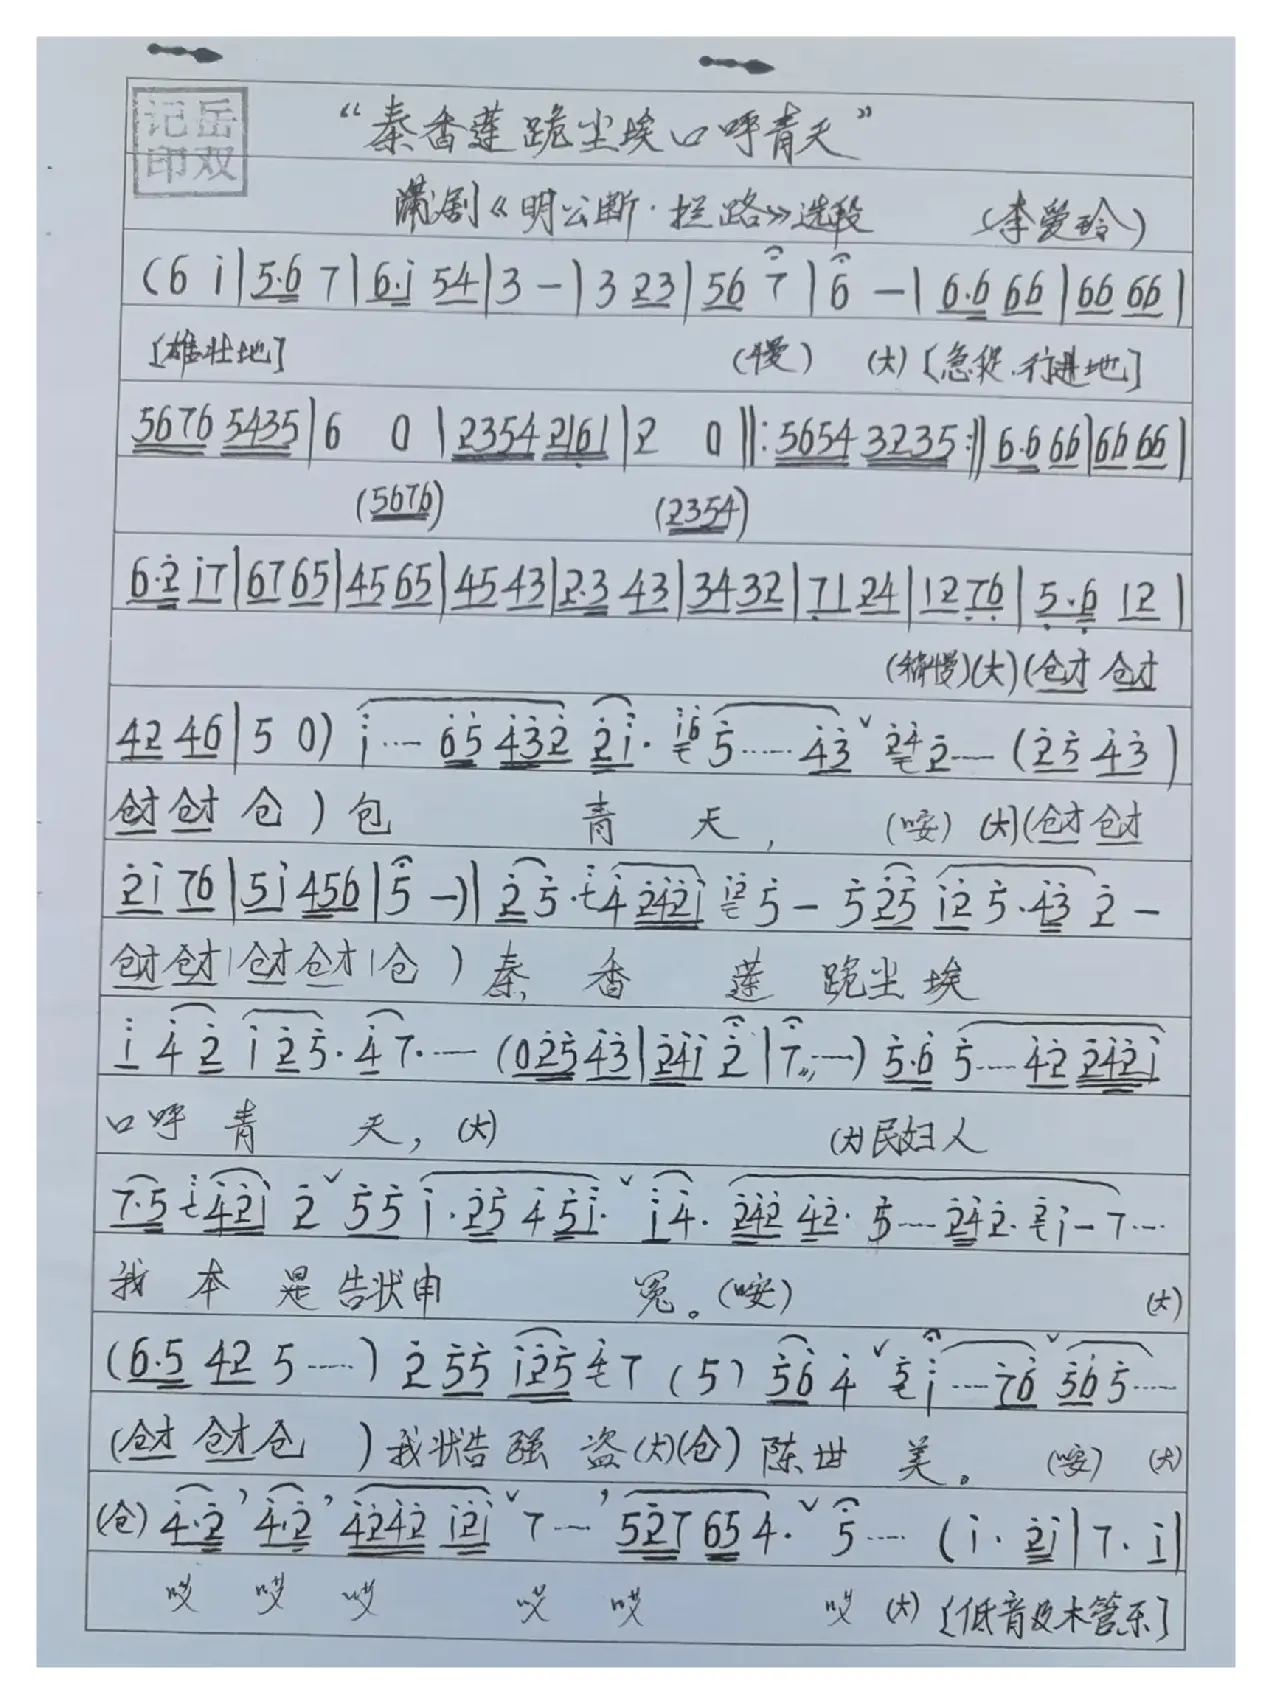 岳双
记印
“秦香莲跪尘埃口呼青天”
蒲剧《明公断·拦路》选段 (李爱玲)
(6 i̇|5·6 7|6·i̇ 54|3 -|3 23|56 7|6 -|6·6 66|66 66|
[雄壮地] (慢) (大) [急促.行进地]
5676 5435|6 0|2354 2161|2 0‖:5654 3235:‖6·6 66|66 66|
(5676) (2354)
6·2̇ i̇7|67 65|45 65|45 43|2·3 43|34 32|71 24|12 76|5·6 12|
(稍慢)(大)(仓才 仓才
42 46|5 0) i̇---- 6̇5̇ 4̇3̇2̇ 2̇i̇· i̇6̇ 5̇------ 4̇3̇ ˇ 2̇4̇ 2̇---- (2̇5̇ 4̇3̇)
仓才 仓才 仓 ) 包 青 天, (哎) (大)(仓才 仓才
2̇i̇ 76|5i̇ 456|5 -)|2̇5̇·i̇4̇ 2̇4̇2̇i̇ i̇2̇ 5̇ - 5̇ 2̇5̇ i̇2̇ 5̇·4̇3̇ 2̇ -
仓才 仓才|仓才 仓才|仓 ) 秦 香 莲 跪尘埃
i̇ 4̇ 2̇ i̇ 2̇ 5̇· 4̇ 7·---- (02̇5̇ 4̇3̇|2̇4̇i̇ 2̇|7,,----) 5̇·6̇ 5̇---- 4̇2̇ 2̇4̇2̇i̇
口呼 青 天, (大) (大)民妇人
7·5 i̇ 4̇2̇i̇ 2̇ ˇ 5̇5̇ i̇·2̇5̇ 4̇ 5̇i̇· ˇ i̇4̇· 2̇4̇2̇ 4̇2̇· 5̇---- 2̇4̇2̇· 2̇ i̇ - 7----
我 本 是 告状申 冤。(哎) (大)
(6·5 42 5-----) 2̇ 5̇5̇ i̇2̇5̇ 4̇ 7 (5) 5̇6̇ 4̇ ˇ 5̇ i̇---- 76 ˇ 5̇6̇ 5̇----
(仓才 仓才 仓 ) 我状告 强 盗 (大)(仓) 陈世 美。 (哎) (大)
(仓) 4̇·2̇ ’ 4̇·2̇ ’ 4̇2̇4̇2̇ i̇2̇i̇ ˇ 7---- ’ 52̇7 65 4· ˇ 5̇---- (i̇· 2̇i̇|7· i̇|
哎 哎 哎 哎 哎 哎 (大) [低音及木管乐]